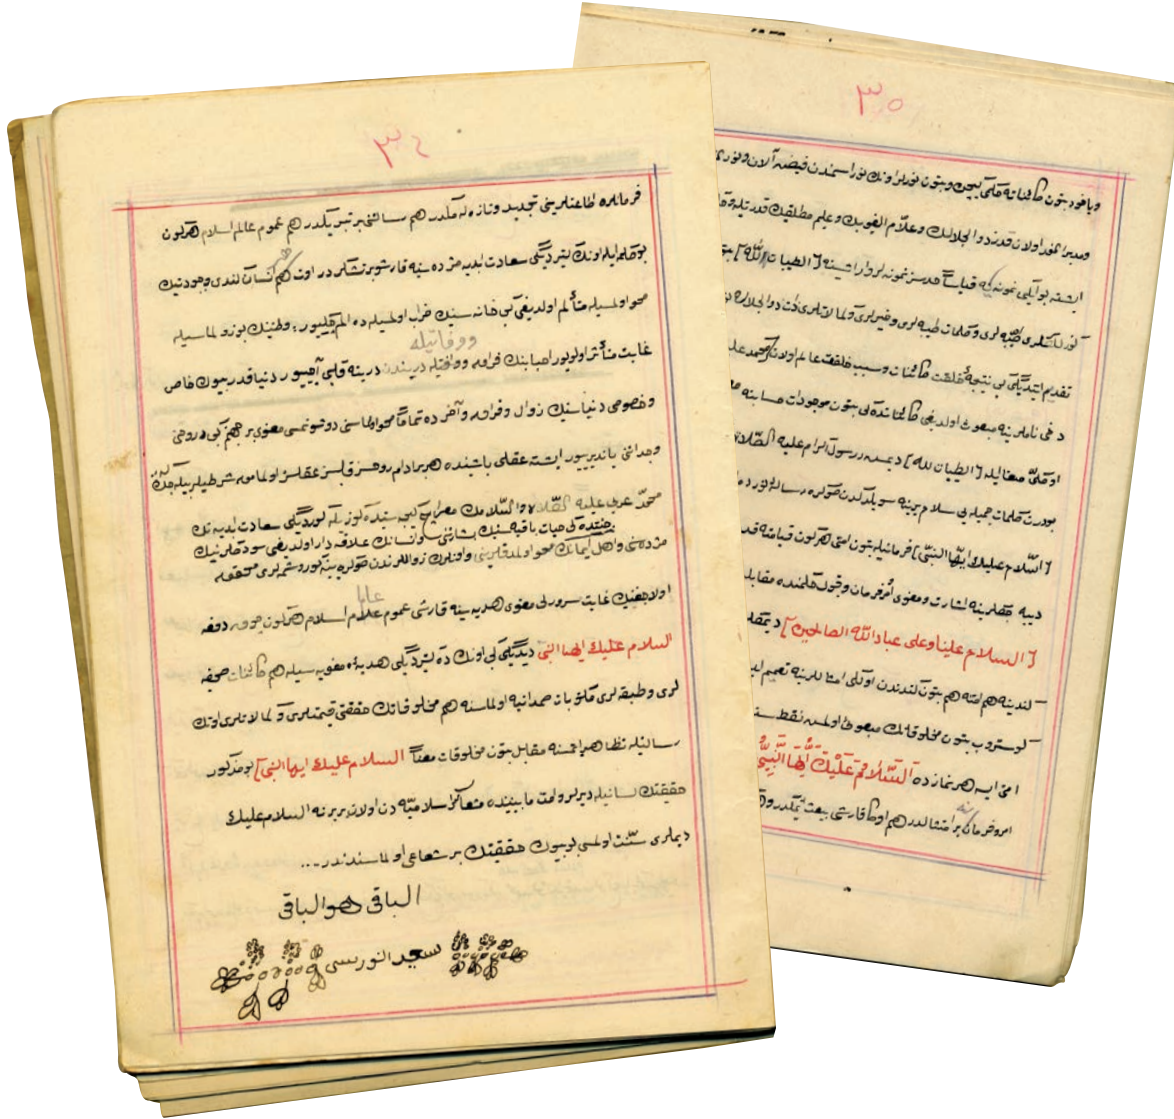 ٣٤
فرمانلره اطاعتلرینی تجدید و تازه لمكدر هم رسالتنی بر تبریكدر هم عموم عالم اسلام هركون
بو كلمه ایله اونك كتیردیگی سعادت ابدیه مژده سنه قارشو بر تشكردر اوت هر انسان كندی وجودینك
محو اولمسیله متألم اولدیغی كبی خانه سنك خراب اولمسیله ده الم چكییور؛ وطننك بوزولماسیله
ووفاتیله
غایت متأثر اولویور احبابنك فراقی ووفاتیله دریندن درینه قلبی آجییور دنیا قدر بیوك خاص
و خصوصی دنیاسنك زوال و فراقی و آخرده تماماً محو اولماسنی دوشونمسی معنوی بر جهنم كبی روحنی
وجداننی یاندیرییور ایشته عقلی باشنده هر بر آدام روحسز قلبسز عقلسز اولمامه شرطیله بیله جك كه
محمد عربی علیه الصلاة والسلامك معراج كیجه سنده گوزیله گوردیگی سعادت ابدیه نك
جنتده كی حیات باقیه نك بشارتنی و انسانك علاقه دار اولدیغی سودكلرینك
مژده سنی و اهل ایمانك محو اولمدقلرینی و اونلرك زواللرندن صوكره ینه گوروشملری محقق
اولاجغنك غایت سرورلی معنوی هدیه سینه قارشی عموم عالم اسلام هركون چوق دفعه
السلام علیك ایها النبی دیدیگی كبی اونك ده كتیردیگی هدیۀ معنویه سیله هم كائنات صحیفه
لری و طبقه لری مكتوبات صمدانیه اولماسنه هم مخلوقاتك حقیقی قیمتلری و كمالاتلری اونك
رسالتیله تظاهر ایتمسنه مقابل بتون مخلوقات معناً السلام علیك ایها النبی] بو مذكور
حقیقتك لسانیله دیرلر و امت مابیننده شعائر اسلامیه دن اولان بربرینه السلام علیك
دیملری سنت اولمسی بو بیوك حقیقتك بر شعاعی اولماسندندر...
الباقی هو الباقی
سعید النورسی
٣٥
و یاخود بتون كائناته ملكی ... و بتون نورلر اونك نور اسمندن فیضه آلان و نور
و مدبر ... اولان قدیر ذو الجلالك و علام الغیوبك و علیم مطلقك قدرتیله و
ایشته بو ایكی نمونه یه قیاساً حدسز نمونه لر وار ایشته [الطیبات لله]
گوزللكلری طیبه لری و كلمات طیبه لری و خیرلری و كمالاتلری ذات ذوالجلاله
تقدیم ایتدیگی كبی نتیجۀ خلقت كائنات و سبب خلقت عالم اولان محمد
دخی ناملرینه مبعوث اولدیغی كائناتده كی بتون موجودات حسابنه
او كلی معنا ایله [الطیبات لله] دیمسنه رسول اكرم علیه الصلاة
بودرت كلمات جمیله یی سلام یرینه سویلدكدن صوكره
[السلام علیك ایها النبی] فرمانیله بتون امتی هركون قیامته قدر
دییه جكلرینه اشارت و معنوی امر فرمان و قبول حكمنده مقابله
[السلام علینا وعلی عباد الله الصالحین] دیمكله
كندینه هم امته هم بتون كندندن اولكی امثاللرینه تعمیم
گوستروب بتون مخلوقاتك مبعوثی اولمسی نقطه
امتی ایسه هر نمازده اَلسَّلَامُ عَلَیْكَ اَیُّهَا النَّبِیُّ
امر و فرمانه بر امتثالدر هم اوكا قارشی بیعت ایتمكدر و